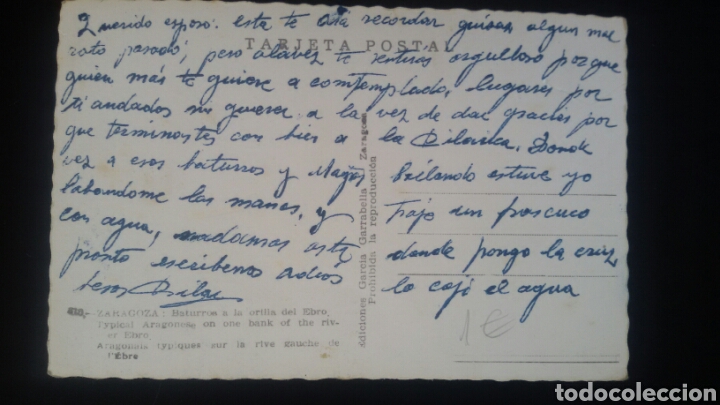 Querido esposo: esta te ará recordar quisas algun mal
rato pasado, pero alavez te sentiras orgulloso porque
TARJETA POSTAL
quien mas te quiere a comtemplado, lugares por
ti andados sin guerra a la vez de dar gracias por
que terminostes con bien a la Pilarica. Donde
vez a esos baturros y
labandome las manos, y
con agua, asta
pronto escibenos adios
besos Pilar
bailando estuve yo
Trajo un frascuco
donde pongo la cruz
lo coji el agua
1 €
410.-ZARAGOZA: Baturros a la orilla del Ebro
Typical Aragonese on one bank of the riv-
er Ebro
Aragonais typiques sur la rive gauche de
l'Ebre
Ediciones García Garrabella - Zaragoza
Prohibida la reproducción
todocoleccion
todocoleccion.net